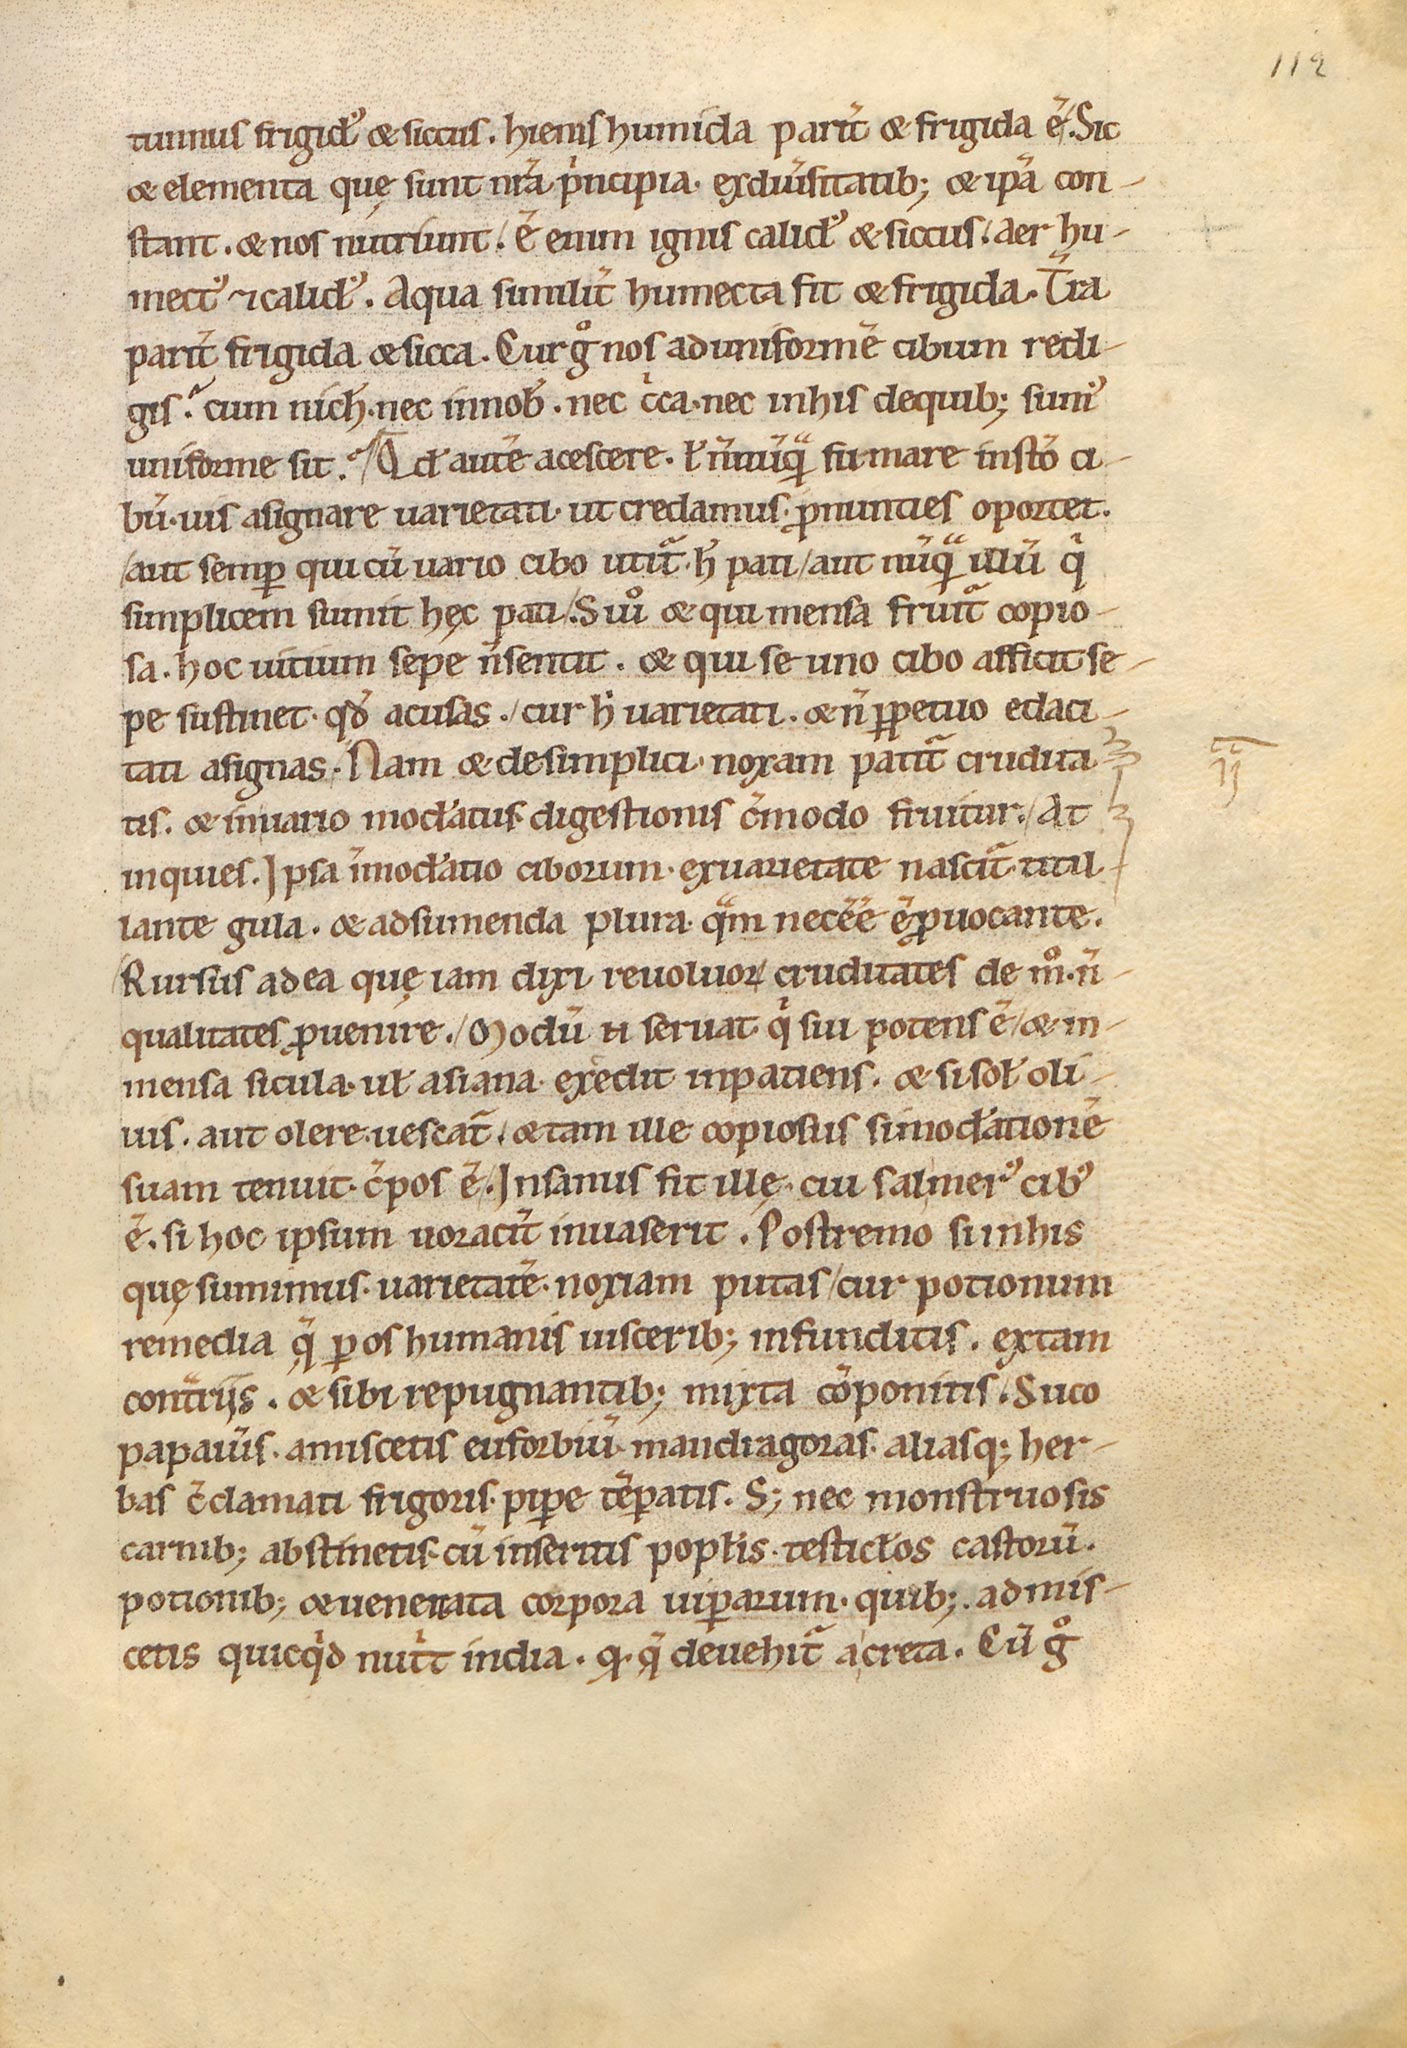 112
tumnus frigid᷒ & siccus. hiems humida parit̄ & frigida ē. Sic
& elementa quę sunt nr̄a p̄ncipia. exdiūsitatib; & ip̄a con-
stant. & nos nutriunt. ē enim ignis calid᷒ & siccus. Aer hu-
mect᷒ ⁊ calid᷒. Aqua similit̄ humecta fit & frigida. T̄ra
parit̄ frigida & sicca. Cur gͦ nos ad uniformē cibum redi-
gis. cum nich̄. nec in nob̄. nec c̄ca. nec in his de quib; sum᷒
uniforme sit. Qđ autē acescere. ł n̄nūqͣ fumare in stō ci-
bū. uis asignare uarietati. ut credamus. ꝓnunties oportet.
aut semꝑ qui cū uario cibo utit̄. h̄ pati / aut nūqͣ illū qⁱ
simplicem sumit hęc pati. S; uͦ & qui mensa fruit̄ copio-
sa. hoc uitium sepe n̄ sentit. & qui se uno cibo afficit se-
pe sustinet. qđ acusas. / cur h̄ uarietati. & n̄ ꝑpetuo edaci-
tati asignas. Nam & de simplici. noxam patit̄ crudita-
tis. & in uario mod̄atus. digestionis c̄modo fruitur. / At
inquies. Ipsa īmod̄atio ciborum. ex uarietate nascit̄. titil-
lante gula. & ad sumenda plura. qͣm necēē ē ꝓuocante.
Rursus ad ea quę iam dixi reuoluor / cruditates de mͦ. n̄
qualitates ꝓuenire. / Modū ⁊ seruat. qⁱ sui potens ē / & in
mensa sicula. uł asiana. excedit inpatiens. & si soł oli-
uis. aut olere uescat̄. & tam ille copiosus si mod̄ationē
suam tenuit. c̄pos ē. Insanus fit ille. cui sal mer᷒ cib᷒
ē. si hoc ipsum uoracit̄ inuaserit. Postremo si in his
quę sumimus. uarietatē. noxiam putas / cur potionum
remedia q̄ ꝑ os humanis uisceribꝫ infunditis. ex tam
cont̄riis. & sibi repugnantib; mixta cōponitis. Suco
papaūis. amiscetis euforbiū. mandragoras. aliasq; her-
bas c̄clamati frigoris. pipe tēꝑatis. S; nec monstruosis
carnib; abstinetis. cū inseritis popłis. testicłos castorū.
potionib; & uenenata corpora uiꝑarum. quib; admis-
cetis quicqⁱd nut̄t india. q. q̄ deuehit̄ a creta. Cū gͦ